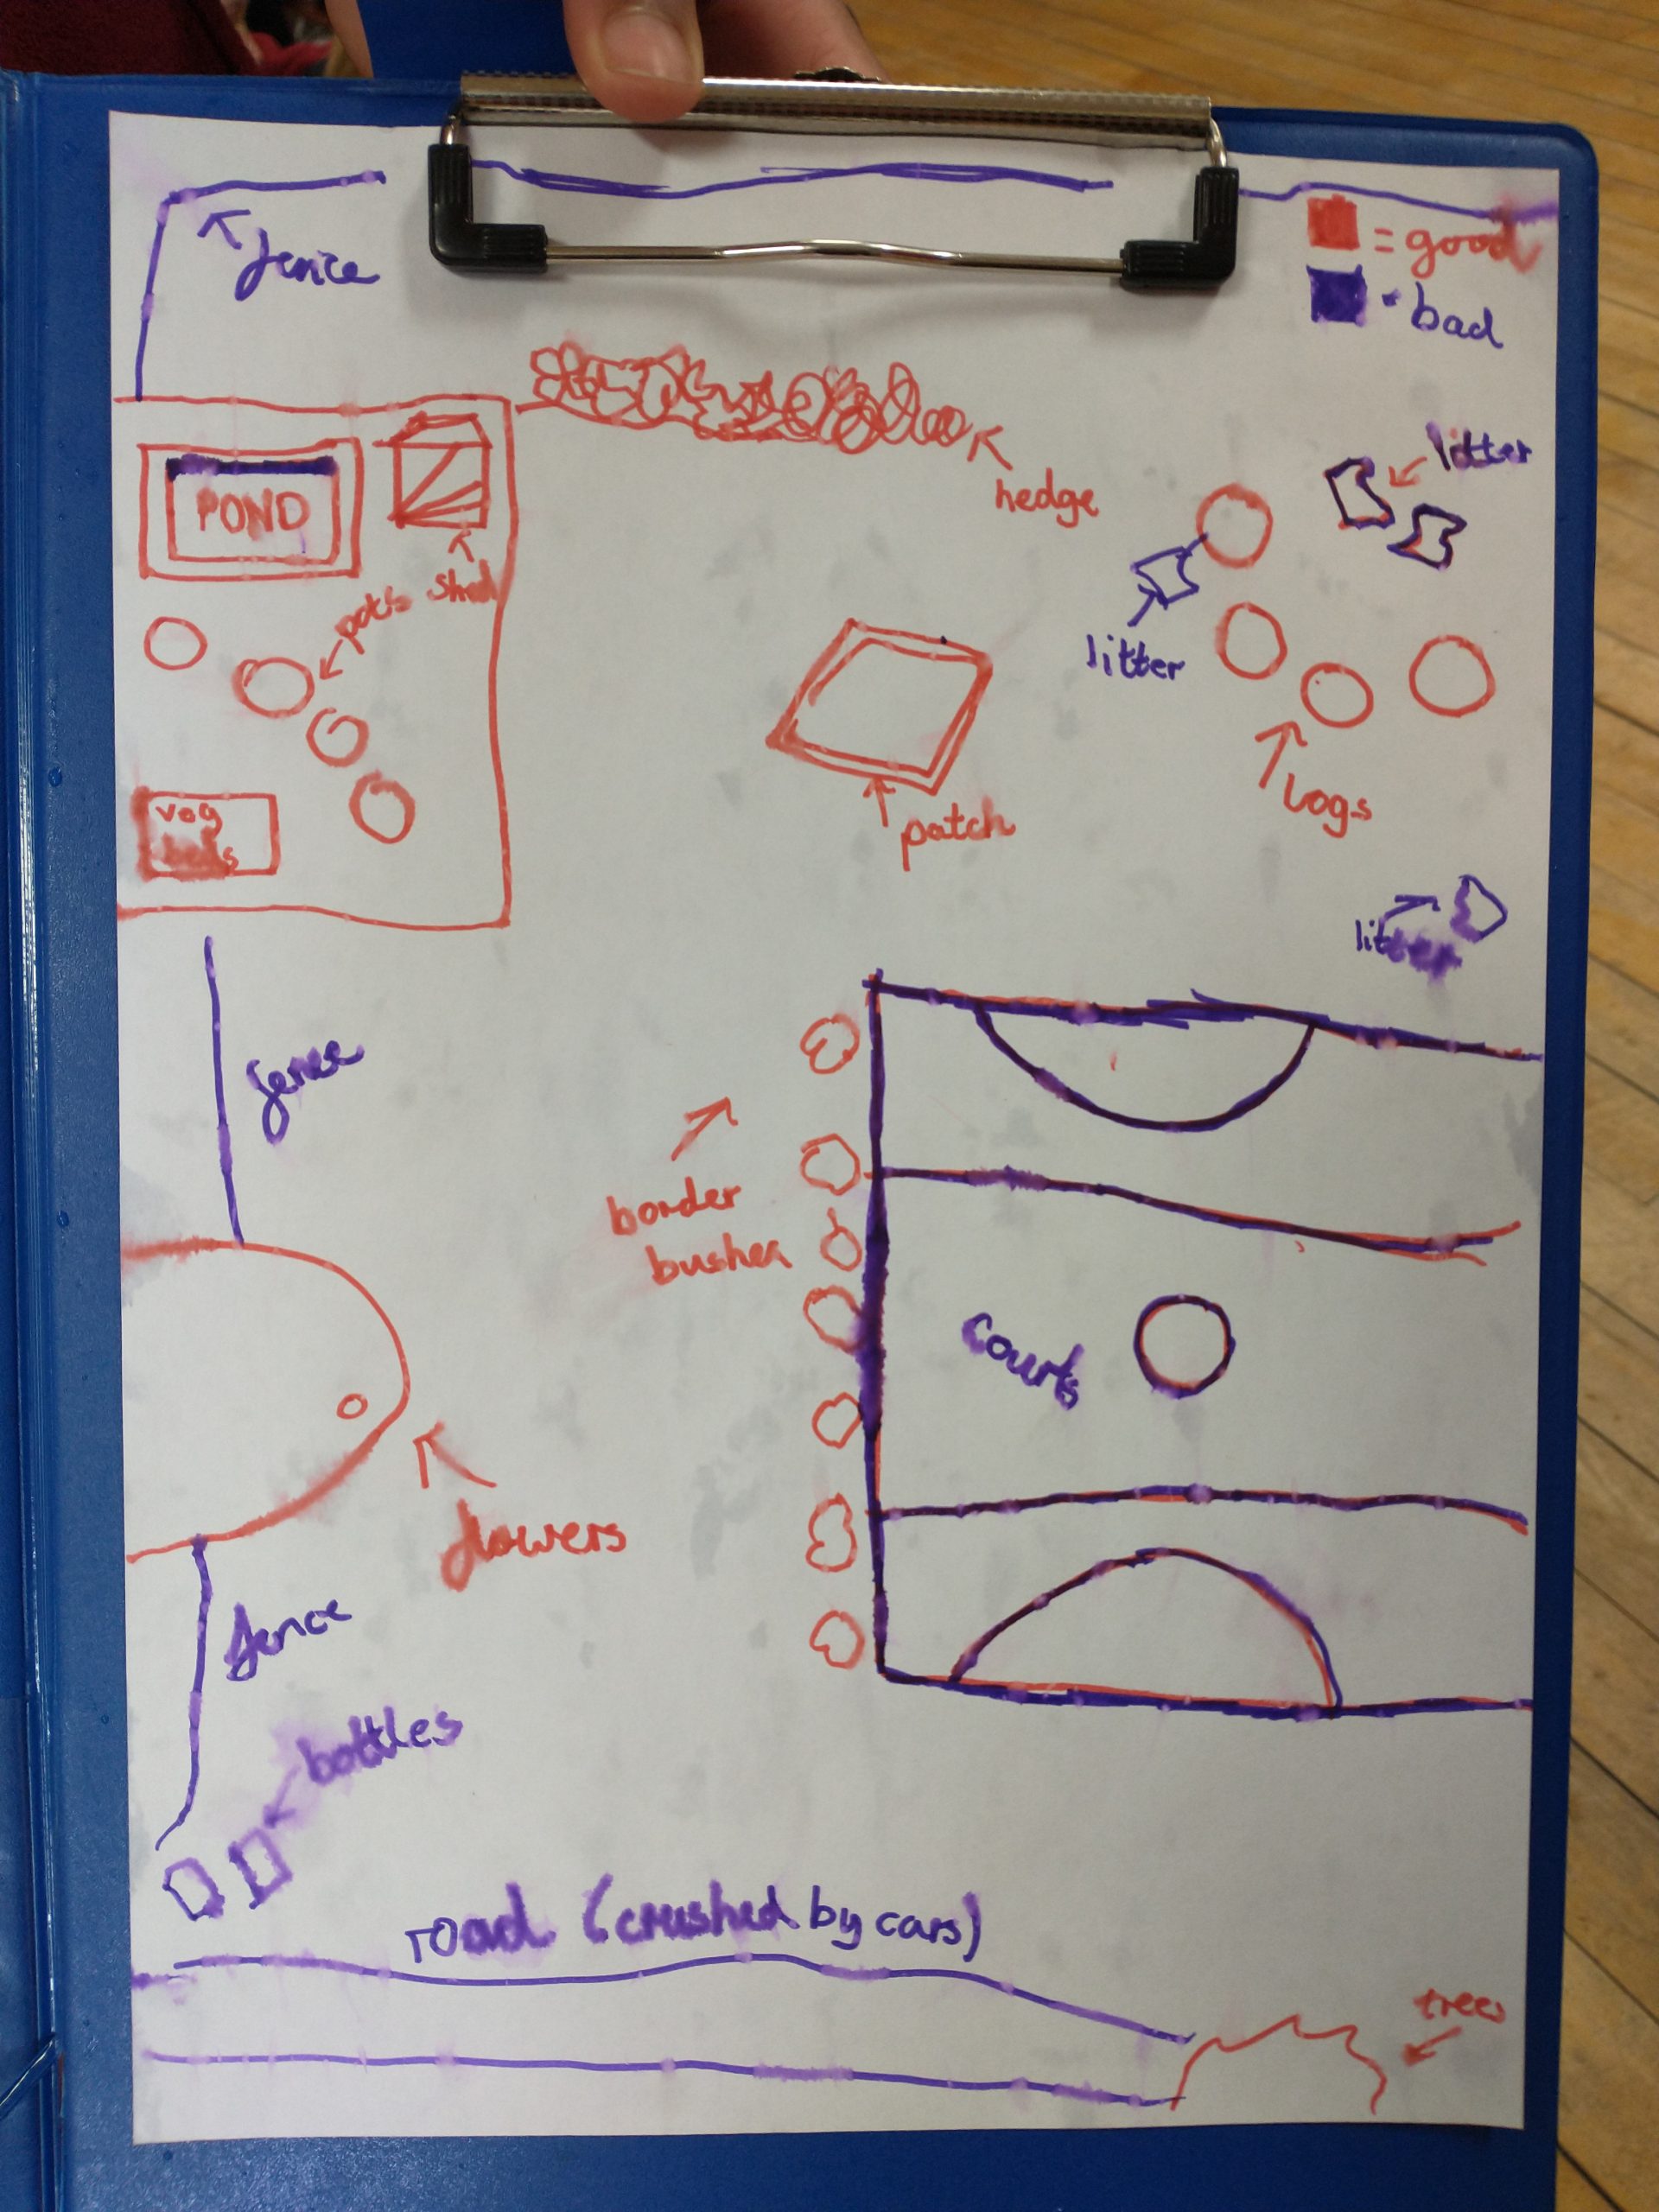 = good
- bad
fence
litter
hedge
POND
shed
pots
litter
vog
beds
patch
Logs
litter
fence
border
bushes
courts
flowers
fence
bottles
road (crushed by cars)
trees